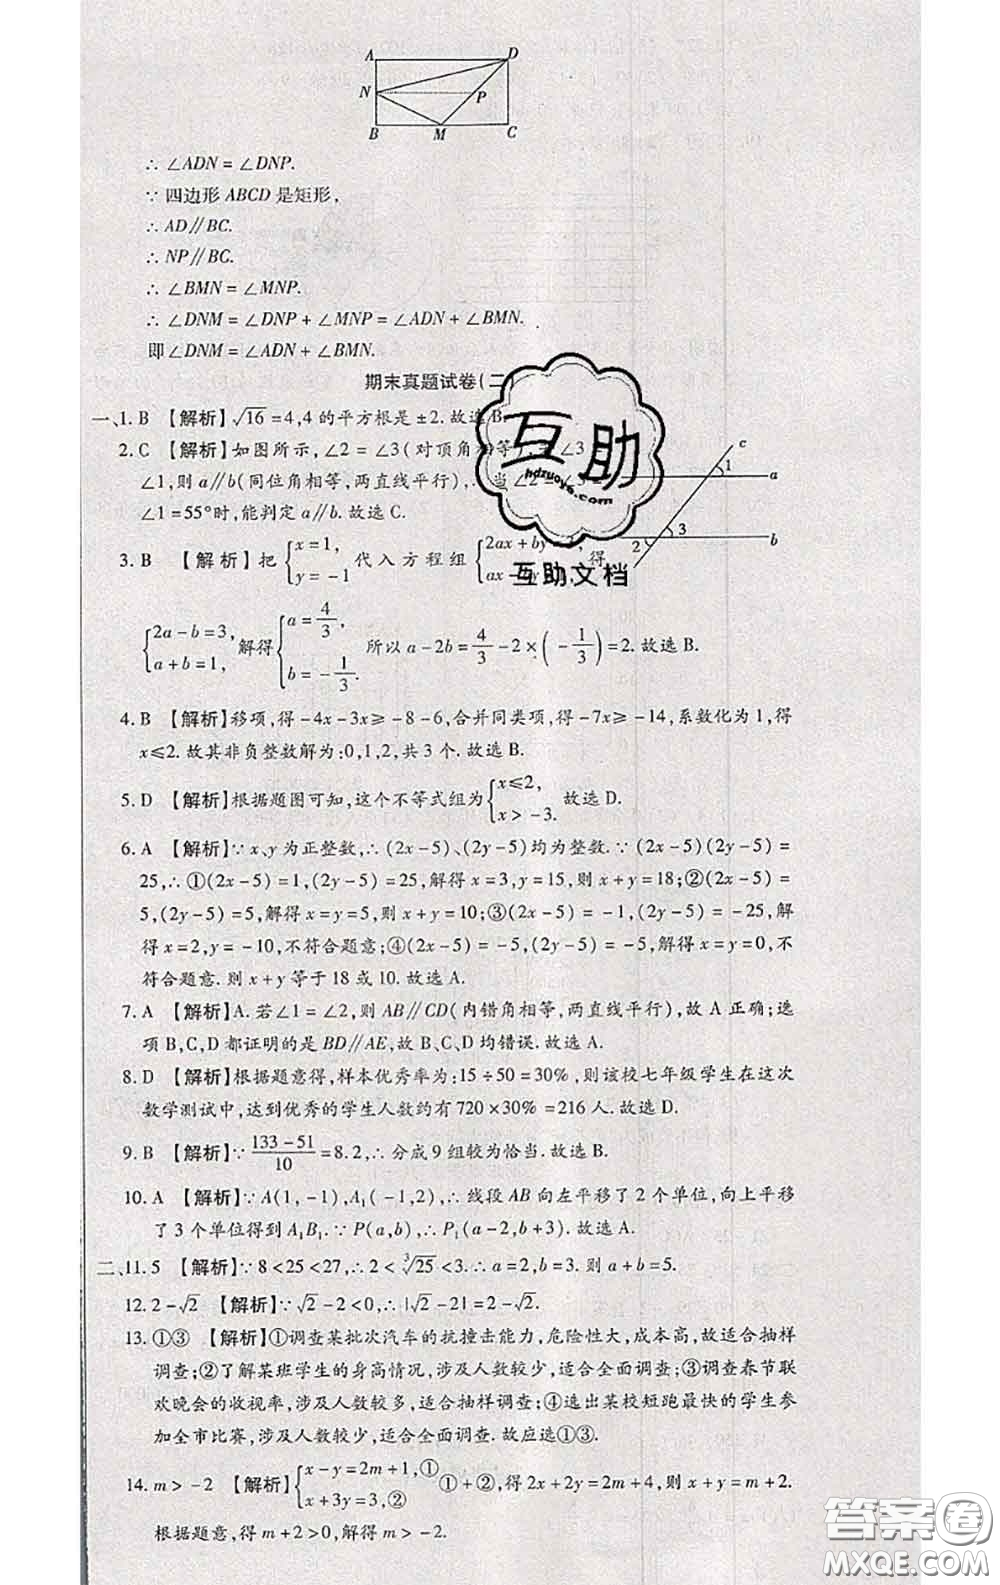 A D
N P
B M C
∴ ∠ADN = ∠DNP.
∵ 四边形 ABCD 是矩形,
∴ AD∥BC.
∴ NP∥BC.
∴ ∠BMN = ∠MNP.
∴ ∠DNM = ∠DNP + ∠MNP = ∠ADN + ∠BMN.
即∠DNM = ∠ADN + ∠BMN.
期末真题试卷(二)
一、1. B 【解析】√16 = 4,4 的平方根是 ±2. 故选 B
2. C 【解析】如图所示,∠2 = ∠3(对顶角相等), ∠3
∠1,则 a∥b(同位角相等,两直线平行), 当 ∠2 = ∠
∠1 = 55°时,能判定 a∥b. 故选 C.
c
1
a
3
2
b
互助
hdzuoye.com
互助文档
3. B 【解析】把 {x = 1, y = -1 代入方程组 {2ax + by = 3, ax 得
{2a - b = 3, a + b = 1, 解得 {a = 4/3, b = -1/3. 所以 a - 2b = 4/3 - 2 × (-1/3) = 2. 故选 B.
4. B 【解析】移项,得 -4x - 3x ≥ -8 - 6,合并同类项,得 -7x ≥ -14,系数化为 1,得
x ≤ 2. 故其非负整数解为:0,1,2,共 3 个. 故选 B.
5. D 【解析】根据题图可知,这个不等式组为 {x ≤ 2, x > -3. 故选 D.
6. A 【解析】∵ x、y 为正整数,∴ (2x - 5)、(2y - 5)均为整数. ∵ (2x - 5)(2y - 5) =
25,∴ ①(2x - 5) = 1,(2y - 5) = 25,解得 x = 3,y = 15,则 x + y = 18;②(2x - 5) =
5,(2y - 5) = 5,解得 x = y = 5,则 x + y = 10;③(2x - 5) = -1,(2y - 5) = -25,解
得 x = 2,y = -10,不符合题意;④(2x - 5) = -5,(2y - 5) = -5,解得 x = y = 0,不
符合题意. 则 x + y 等于 18 或 10. 故选 A.
7. A 【解析】A. 若∠1 = ∠2,则 AB∥CD(内错角相等,两直线平行),故 A 正确;选
项 B、C、D 都证明的是 BD∥AE,故 B、C、D 均错误. 故选 A.
8. D 【解析】根据题意得,样本优秀率为:15 ÷ 50 = 30%,则该校七年级学生在这次
数学测试中,达到优秀的学生人数约有 720 × 30% = 216 人. 故选 D.
9. B 【解析】∵ (133 - 51)/10 = 8.2,∴ 分成 9 组较为恰当. 故选 B.
10. A 【解析】∵ A(1, -1),A₁(-1,2),∴ 线段 AB 向左平移了 2 个单位,向上平移
了 3 个单位得到 A₁B₁. ∵ P(a,b),∴ P₁(a - 2,b + 3). 故选 A.
二、11. 5 【解析】∵ 8 < 25 < 27,∴ 2 < ∛25 < 3,∴ a = 2,b = 3. 则 a + b = 5.
12. 2 - √2 【解析】∵ √2 - 2 < 0,∴ |√2 - 2| = 2 - √2.
13. ①③ 【解析】①调查某批次汽车的抗撞击能力,危险性大,成本高,故适合抽样
调查;②了解某班学生的身高情况,涉及人数较少,适合全面调查;③调查春节联
欢晚会的收视率,涉及人数较多,适合抽样调查;④选出某校短跑最快的学生参
加全市比赛,涉及人数较少,适合全面调查. 故应选①③.
14. m > -2 【解析】{x - y = 2m + 1,① x + 3y = 3,② ① + ②,得 2x + 2y = 2m + 4,则 x + y = m + 2.
根据题意,得 m + 2 > 0,解得 m > -2.
答案圈
MXQE.COM